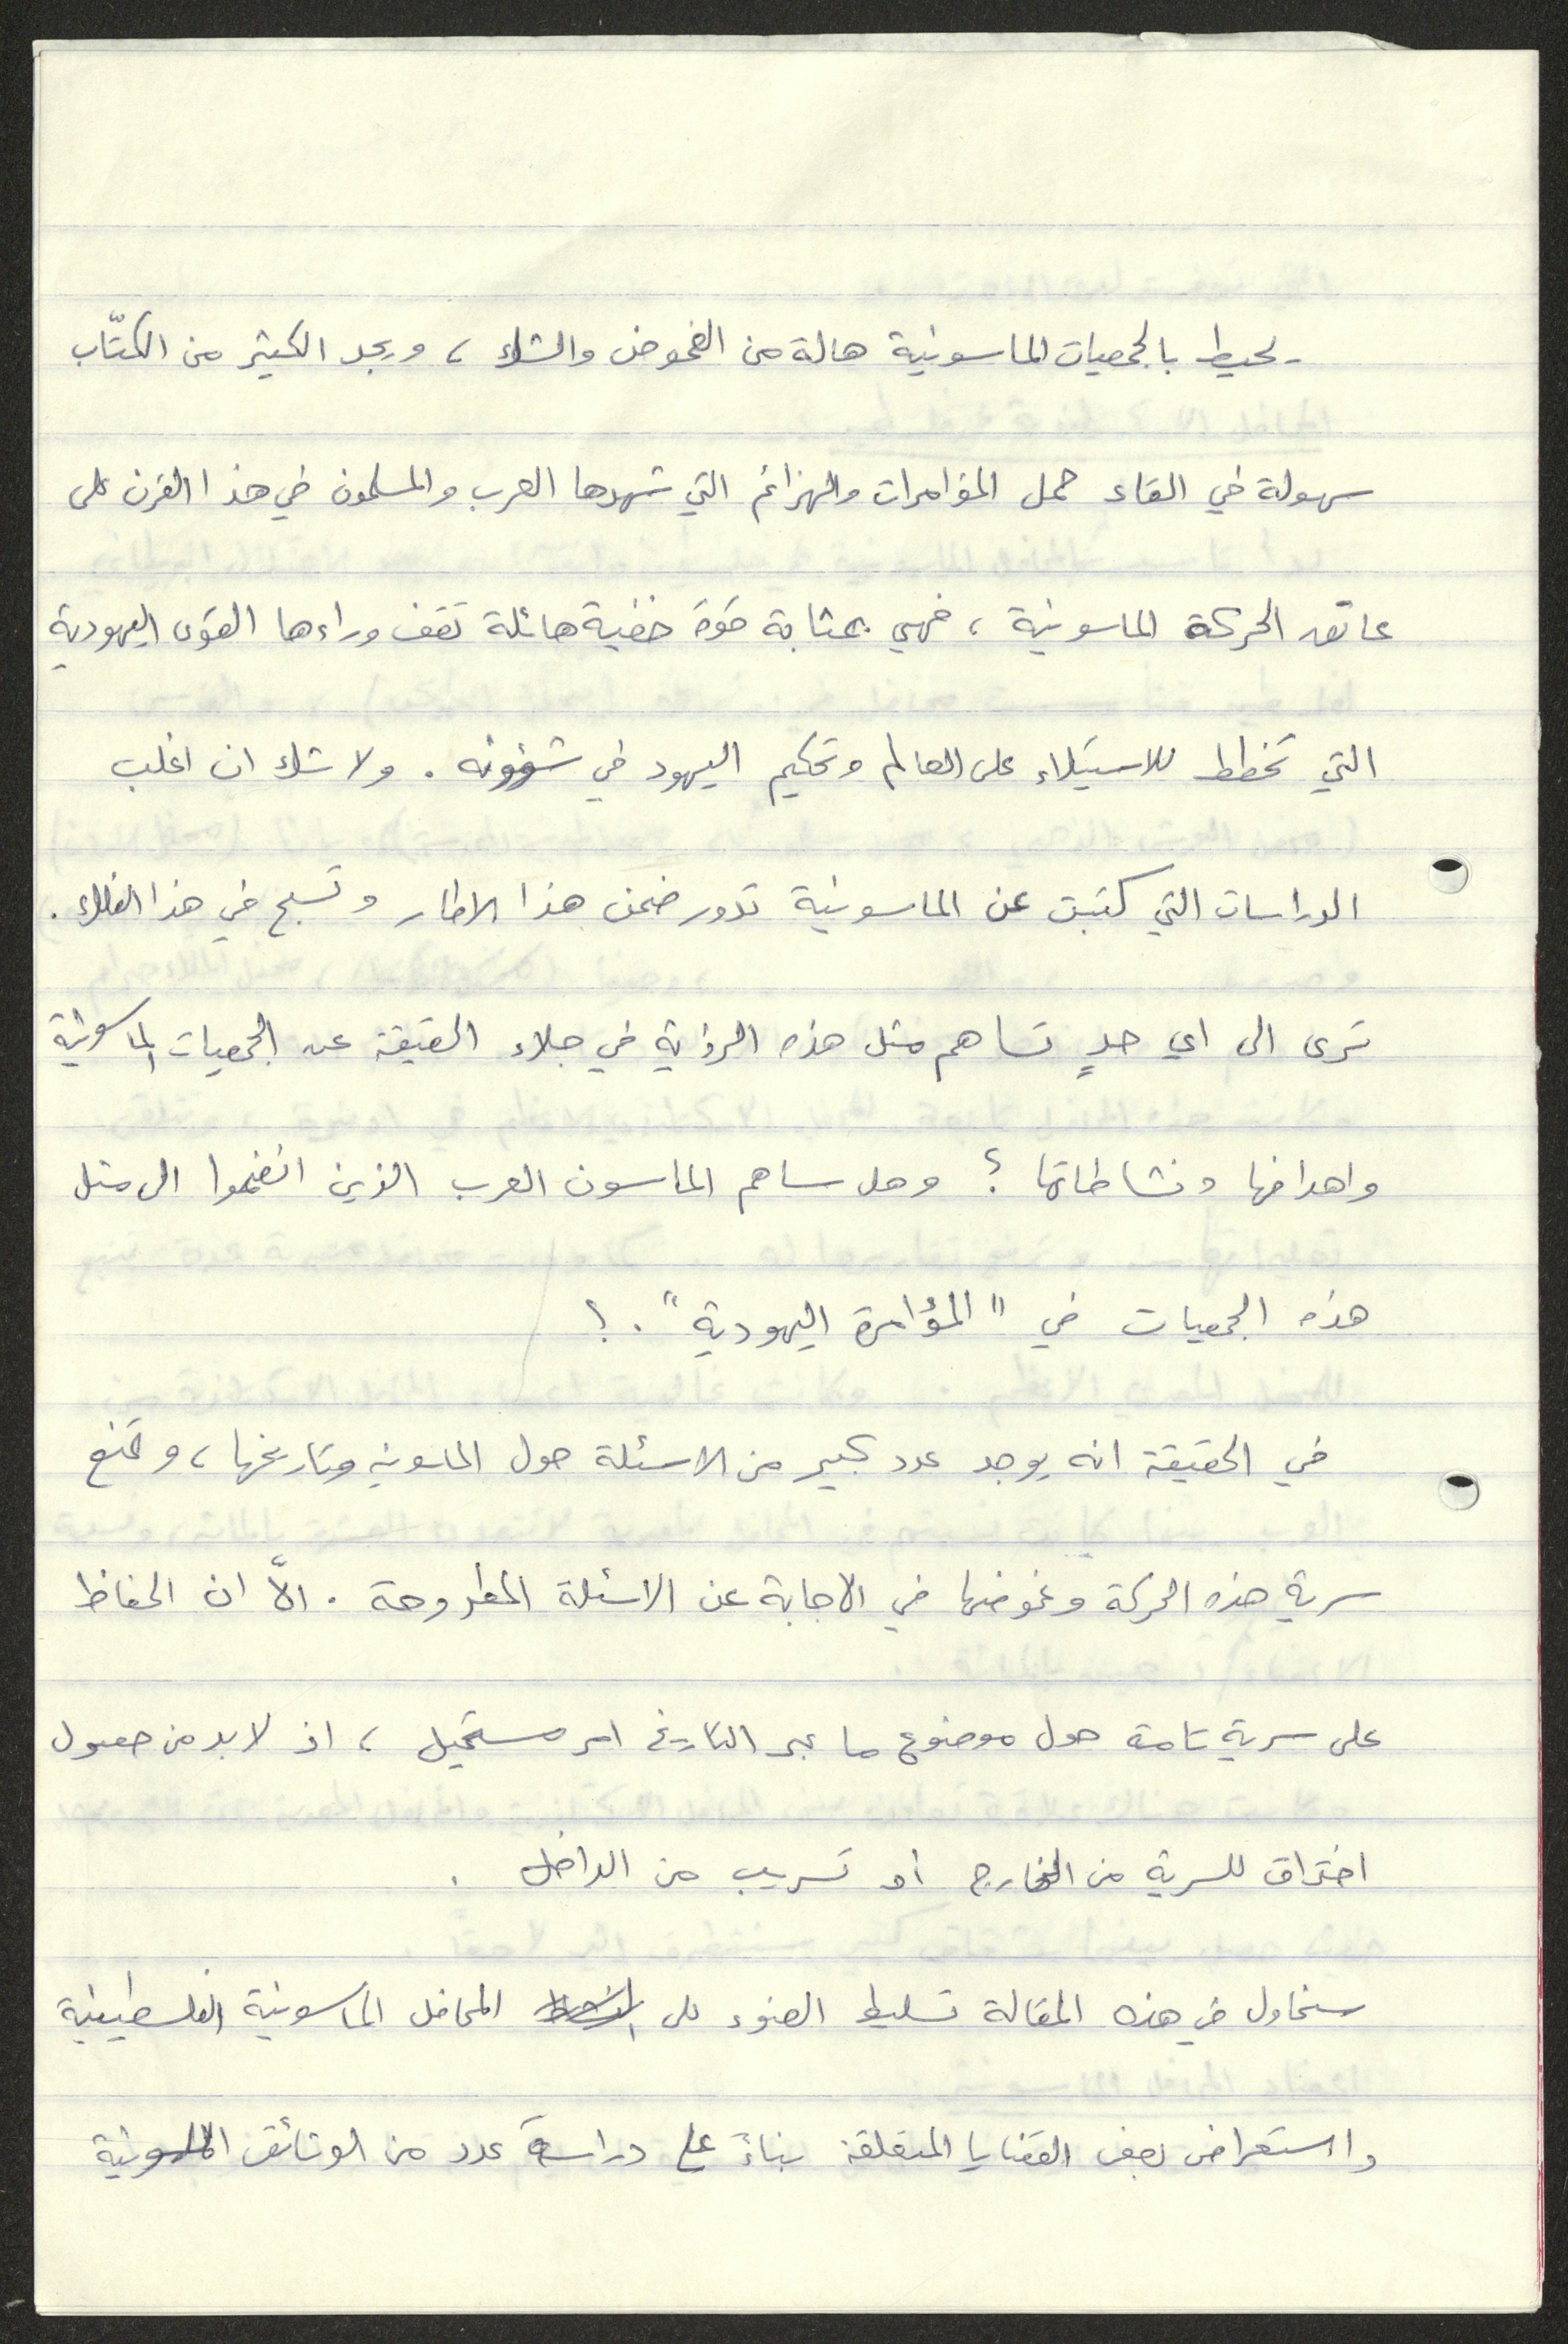 يحيط بالجمعيات الماسونية هالة من الغموض والشك ، ويجد الكثير من الكتّاب
سهولة في القاء حمل المؤامرات والهزائم التي شهدها العرب والمسلمون في هذا القرن على
عاتق الحركة الماسونية ، فهي بمثابة قوة خفية هائلة تقف وراءها القوى اليهودية
التي تخطط للاستيلاء على العالم وتحكيم اليهود في شؤونه . ولا شك ان اغلب
الدراسات التي كتبت عن الماسونية تدور ضمن هذا الاطار وتسبح في هذا الفلك .
ترى الى اي حدٍ تساهم مثل هذه الرؤية في جلاء الحقيقة عن الجمعيات الماسونية
واهدافها ونشاطاتها ؟ وهل ساهم الماسون العرب الذين انضموا الى مثل
هذه الجمعيات في "المؤامرة اليهودية" . ؟
في الحقيقة انه يوجد عدد كبير من الاسئلة حول الماسونية وتاريخها ، وتمنع
سرية هذه الحركة وغموضها في الاجابة عن الاسئلة المطروحة . الاّ ان الحفاظ
على سرية تامة حول موضوع ما عبر التاريخ امر مستحيل ، اذ لا بد من حصول
اختراق للسرية من الخارج أو تسريب من الداخل .
سنحاول في هذه المقالة تسليط الضوء على المحافل الماسونية الفلسطينية
واستعراض بعض القضايا المتعلقة بناءً على دراسة عدد من الوثائق الماسونية